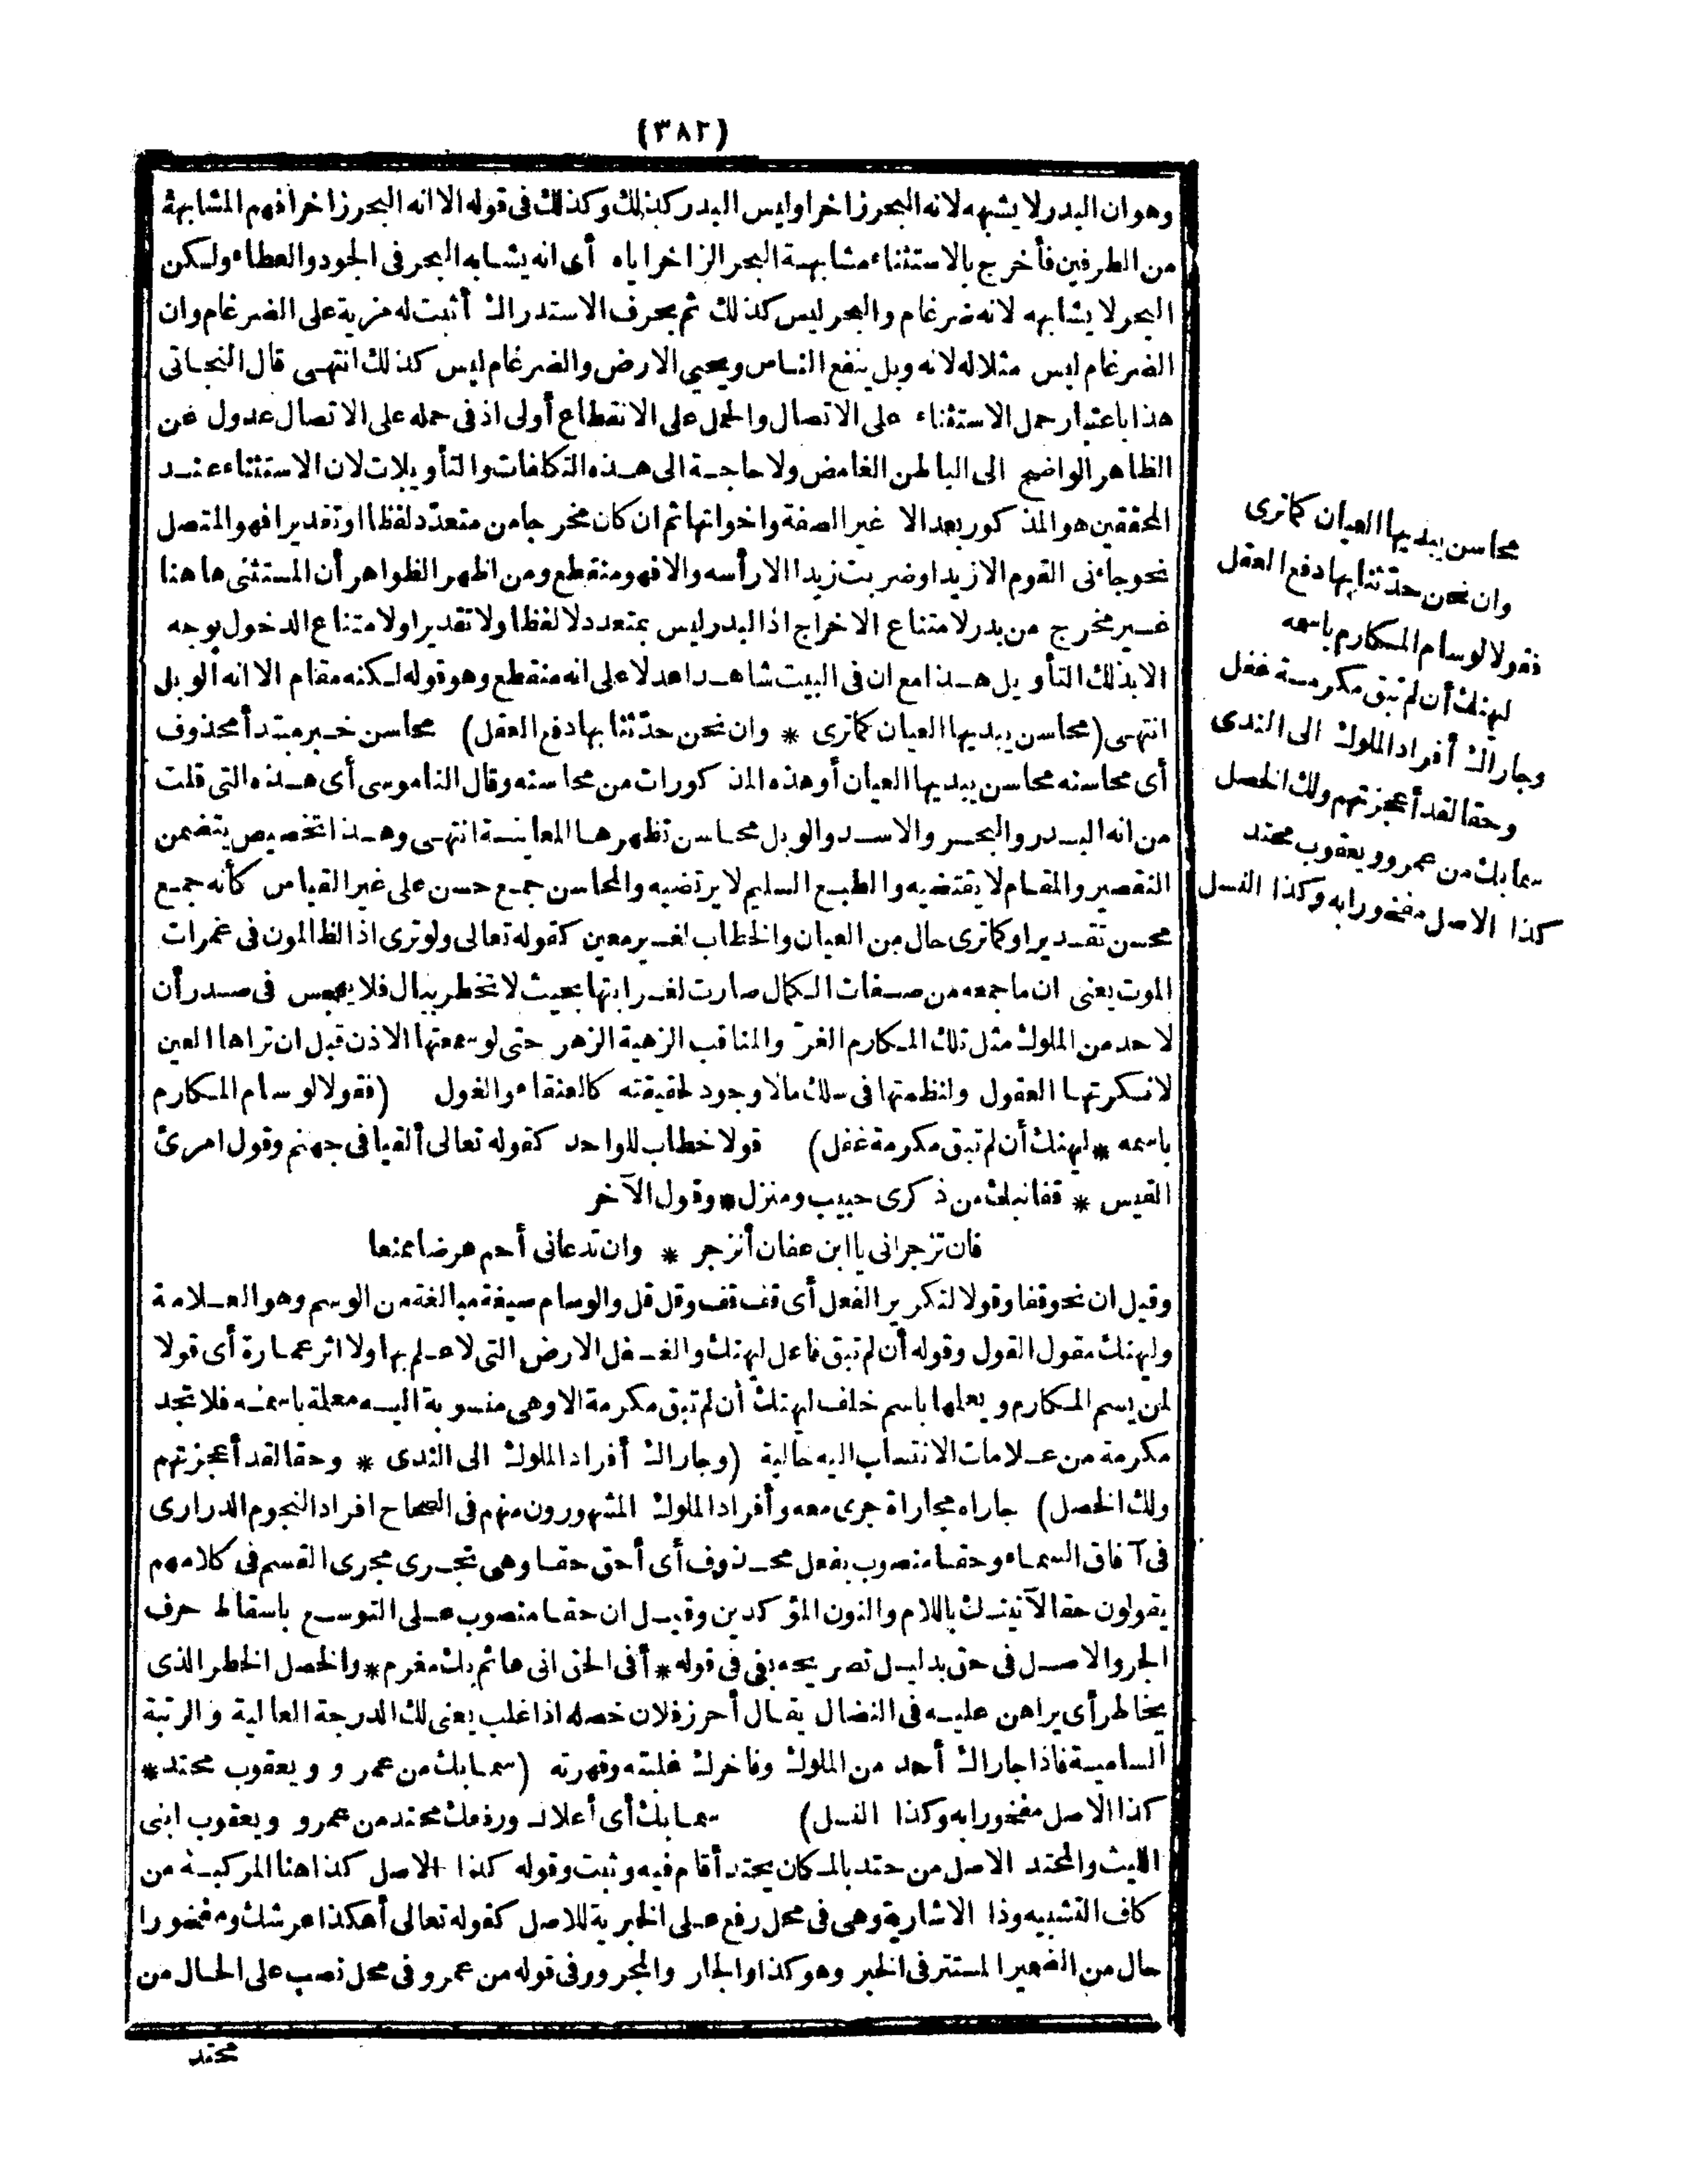 (٣٨٢)
وهوان البدر لا يشبهه لانه البحر زاخرا وليس البدر كذلك وكذلك فى قوله الا انه البحر زاخرا فهم المشابهة
من الطرفين فأخرج بالاستثناء مشابهة البحر الزاخر اياه أى انه يشابه البحر فى الجود والعطاء ولكن
البحر لا يشابهه لانه ضرغام والبحر ليس كذلك ثم بحرف الاستدراك أثبت له مزية على الضرغام وان
الضرغام ليس مثلا له لانه وبل ينفع الناس ويحيي الارض والضرغام ليس كذلك انتهى قال النجاتى
هذا باعتبار حمل الاستثناء على الاتصال والحمل على الانقطاع أولى اذ فى حمله على الاتصال عدول عن
الظاهر الواضح الى الباطن الغامض ولا حاجة الى هذه التكلفات والتأويلات لان الاستثناء عند
المحققين هو المذكور بعد الا غير الصفة واخواتها ثم ان كان مخرجا من متعدّد لفظا اوتقديرا فهو المتصل
نحو جاءنى القوم الا زيدا وضربت زيدا الا رأسه والا فهو منقطع ومن اظهر الظواهر أن المستثنى هاهنا
غير مخرج من بدر لامتناع الاخراج اذا البدر ليس بمتعدد لا لفظا ولا تقديرا ولامتناع الدخول بوجه
الا بذلك التأويل هذا مع ان فى البيت شاهدا عدلا على انه منقطع وهو قوله لكنه مقام الا انه الوبل
انتهى (محاسن يبديها العيان كماترى * وان نحن حدّثنا بها دفع العقل) محاسن خبر مبتدأ محذوف
أى محاسنه محاسن يبديها العيان أو هذه المذكورات من محاسنه وقال الناموسى أى هذه التى قلت
من انه البدر والبحر والاسد والوبل محاسن تظهرها المعاينة انتهى وهذا تخصيص يتضمن
التقصير والمقام لا يقتضيه والطبع السليم لا يرتضيه والمحاسن جمع حسن على غير القياس كأنه جمع
محسن تقديرا وكماترى حال من العيان والخطاب لغير معين كقوله تعالى ولو ترى اذ الظالمون فى غمرات
الموت يعنى ان ما جمعه من صفات الكمال صارت لغرابتها بحيث لا تخطر ببال فلا يهجس فى صدر أن
لاحد من الملوك مثل تلك المكارم الغرّ والمناقب الزهية الزهر حتى لو سمعتها الاذن قبل ان تراها العين
لانكرتها العقول ولنظمتها فى سلك مالا وجود لحقيقته كالعنقاء والغول (فقولا لوسام المكارم
باسمه * ليهنك أن لم تبق مكرمة غفل) قولا خطاب للواحد كقوله تعالى ألقيا فى جهنم وقول امرئ
القيس * قفا نبك من ذكرى حبيب ومنزل * وقول الآخر
فان تزجرانى يا ابن عفان أنزجر * وان تدعانى أحم عرضا ممنعا
وقيل ان نحو قفا وقولا لتكرير الفعل أى قف قف وقل قل والوسام صيغة مبالغة من الوسم وهو العلامة
وليهنك مقول القول وقوله أن لم تبق فاعل ليهنك والغفل الارض التى لا علم بها ولا اثر عمارة أى قولا
لمن يسم المكارم ويعلمها باسم خلف ليهنك أن لم تبق مكرمة الا وهى منسوبة اليه معلمة باسمه فلا تجد
مكرمة من علامات الانتساب اليه خالية (وجاراك أفراد الملوك الى الندى * وحقا لقد أعجزتهم
ولك الخصل) جاراه مجاراة جرى معه وأفراد الملوك المشهورون منهم فى الصحاح افراد النجوم الدرارى
فى آفاق السماء وحقا منصوب بفعل محذوف أى أحق حقا وهى تجرى مجرى القسم فى كلامهم
يقولون حقا لآتينك باللام والنون المؤكدين وقيل ان حقا منصوب على التوسع باسقاط حرف
الجر والاصل فى حق بدليل تصريحه بفى فى قوله * أفى الحق انى هائم بك مغرم * والخصل الخطر الذى
يخاطر أى يراهن عليه فى النضال يقال أحرز فلان خصله اذا غلب يعنى لك الدرجة العالية والرتبة
السامية فاذا جاراك أحد من الملوك وفاخرك غلبته وقهرته (سما بك من عمرو ويعقوب محتد *
كذا الاصل مفخورا به وكذا النسل) سما بك أى أعلاك ورفعك محتد من عمرو ويعقوب ابنى
الليث والمحتد الاصل من حتد بالمكان يحتد أقام فيه وثبت وقوله كذا الاصل كذا هنا المركبة من
كاف التشبيه وذا الاشارية وهى فى محل رفع على الخبرية للاصل كقوله تعالى أهكذا عرشك ومفخورا
حال من الضمير المستتر فى الخبر وهو كذا والجار والمجرور فى قوله من عمرو فى محل نصب على الحال من
محتد
محاسن يبديها العيان كماترى
وان نحن حدّثنا بها دفع العقل
فقولا لوسام المكارم باسمه
ليهنك أن لم تبق مكرمة غفل
وجاراك أفراد الملوك الى الندى
وحقا لقد أعجزتهم ولك الخصل
سما بك من عمرو ويعقوب محتد
كذا الاصل مفخورا به وكذا النسل